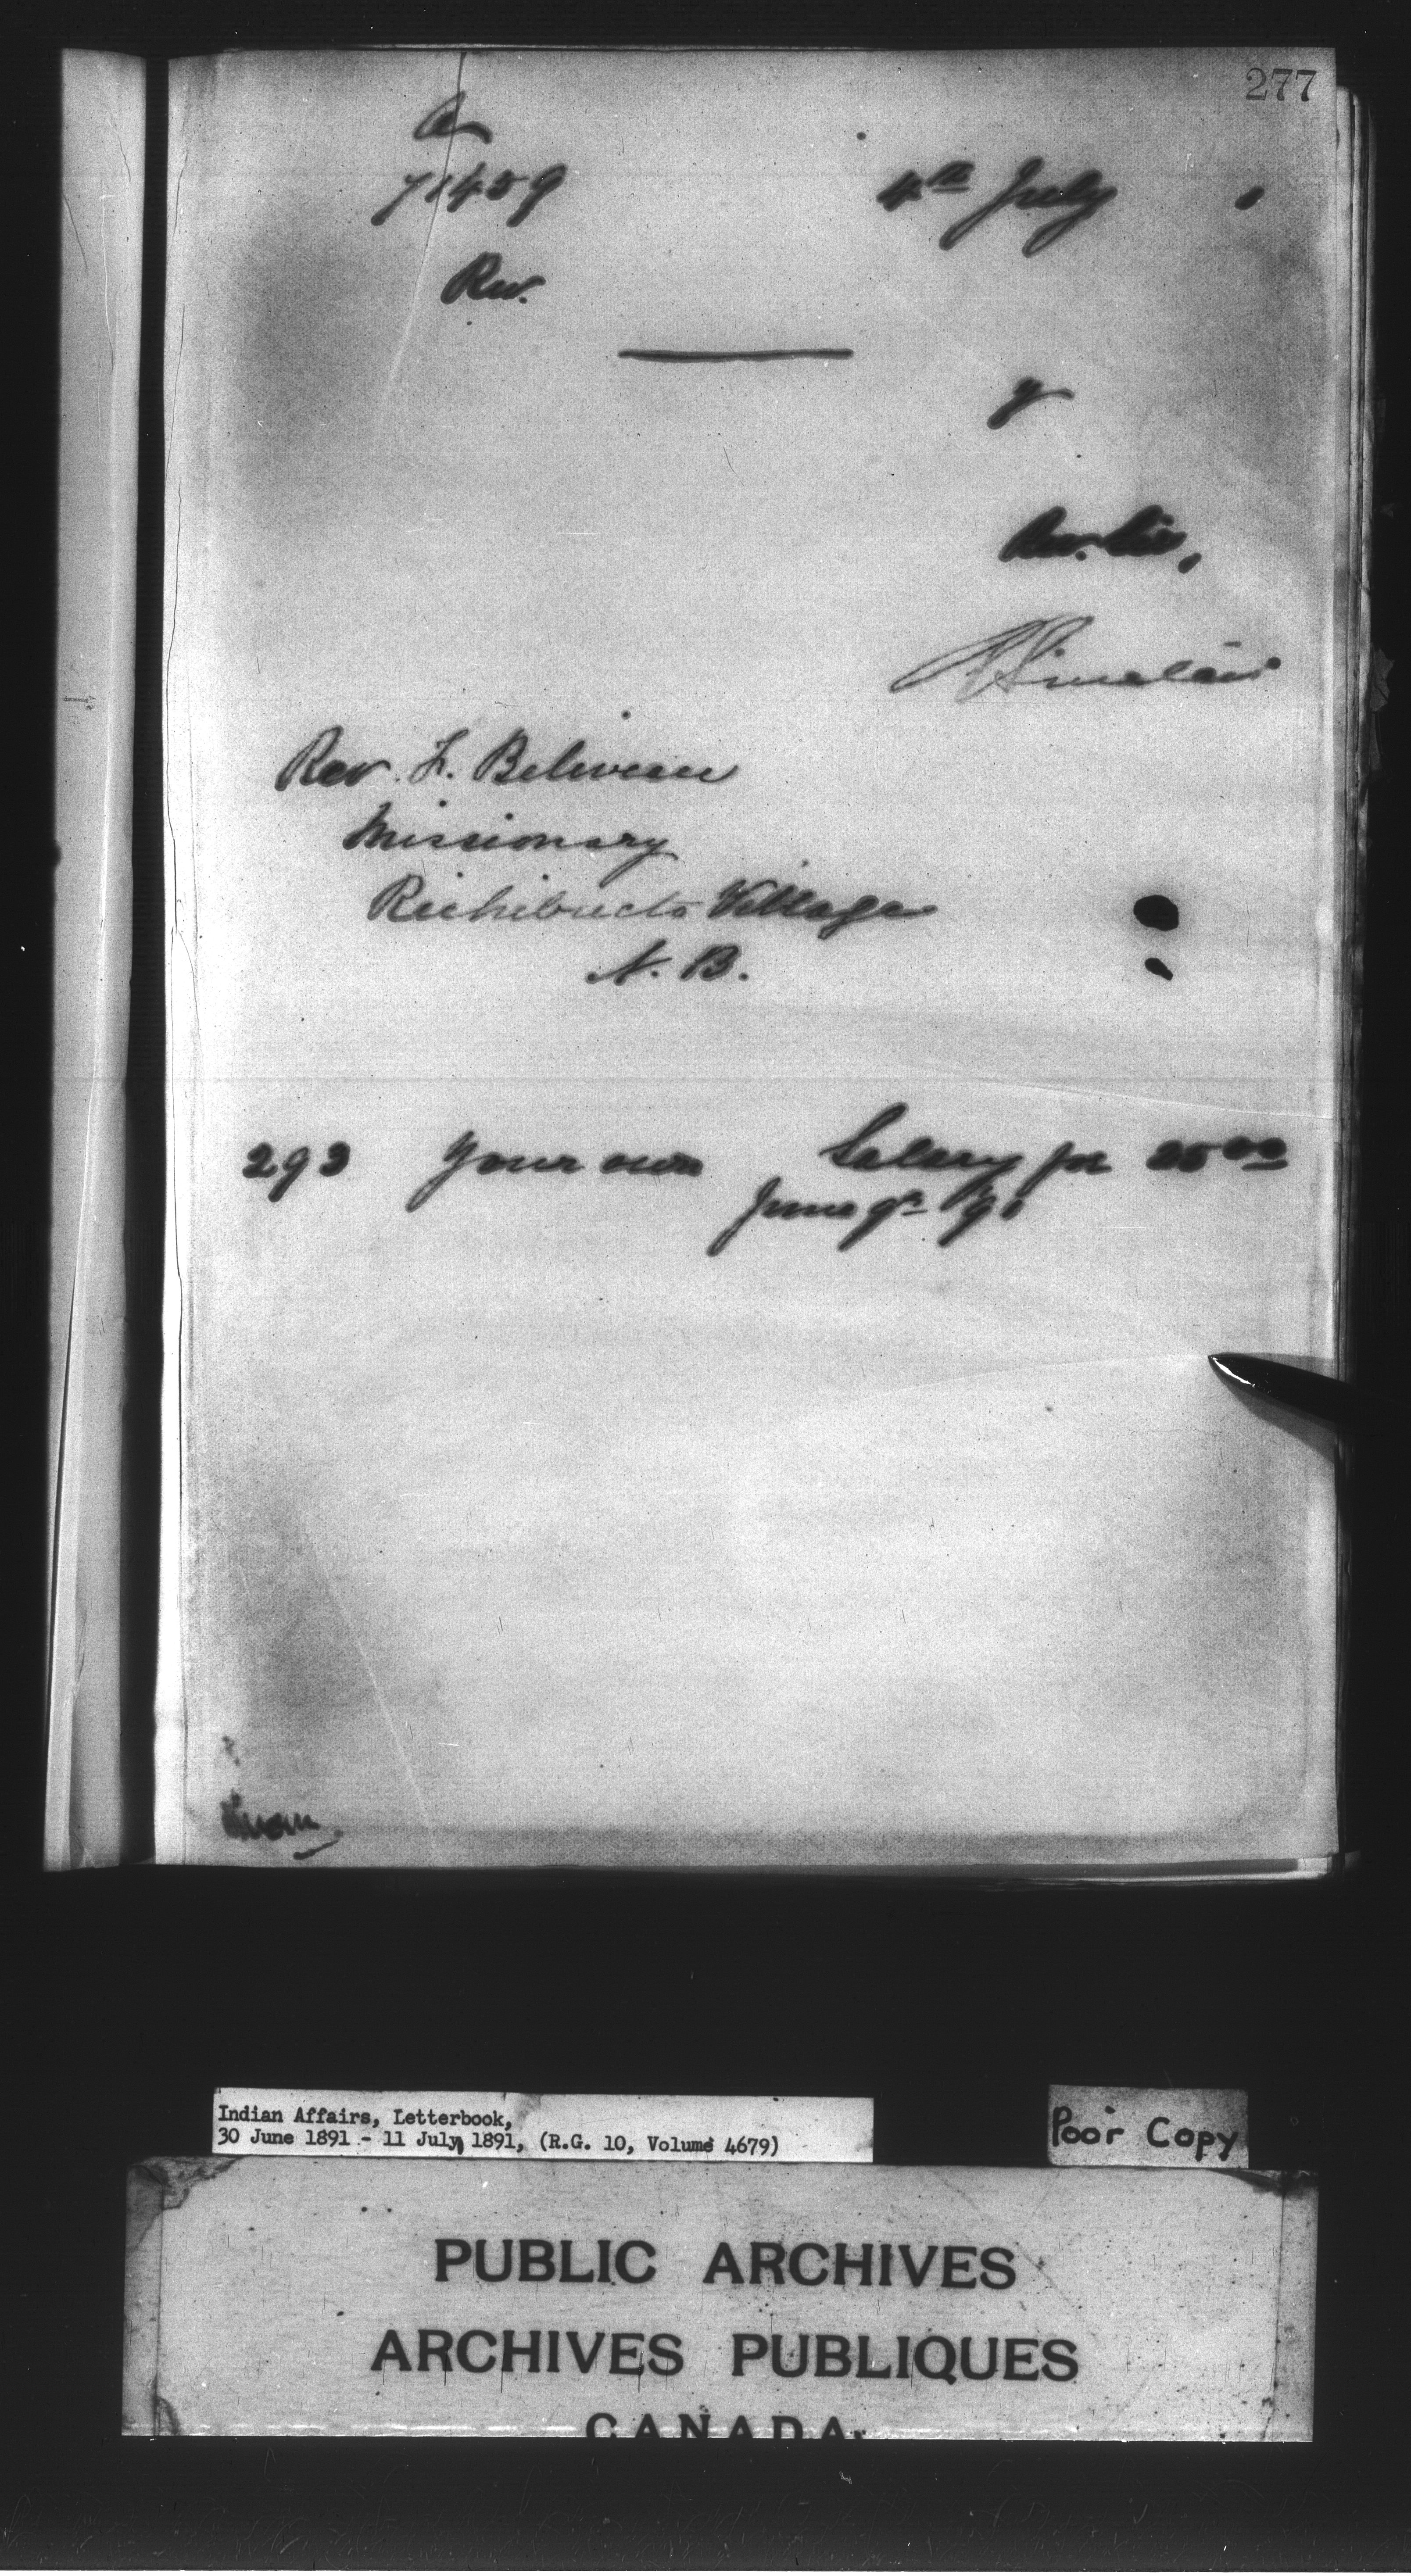 277
A
71459 4th July 1
Rev.
y
Rev. Sir,
R Sinclair
Rev. F.
Missionary
Richibucto Village
N. B.
293 Your own Salary for 25 00
June qr '91
Indian Affairs, Letterbook,
30 June 1891 - 11 July 1891, (R.G. 10, Volume 4679)
Poor Copy
PUBLIC ARCHIVES
ARCHIVES PUBLIQUES
CANADA